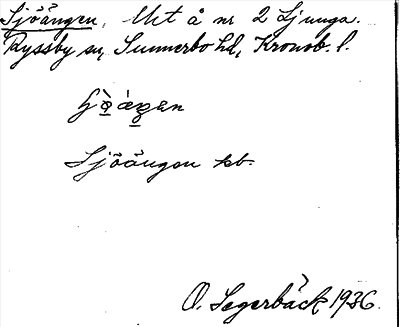 Sjöängen, Urt å nr 2 Ljunga.
Ryssby sn, Sunnerbo hd, Kronob. l.
Sjöängen kb.
O. Segerbäck 1936.